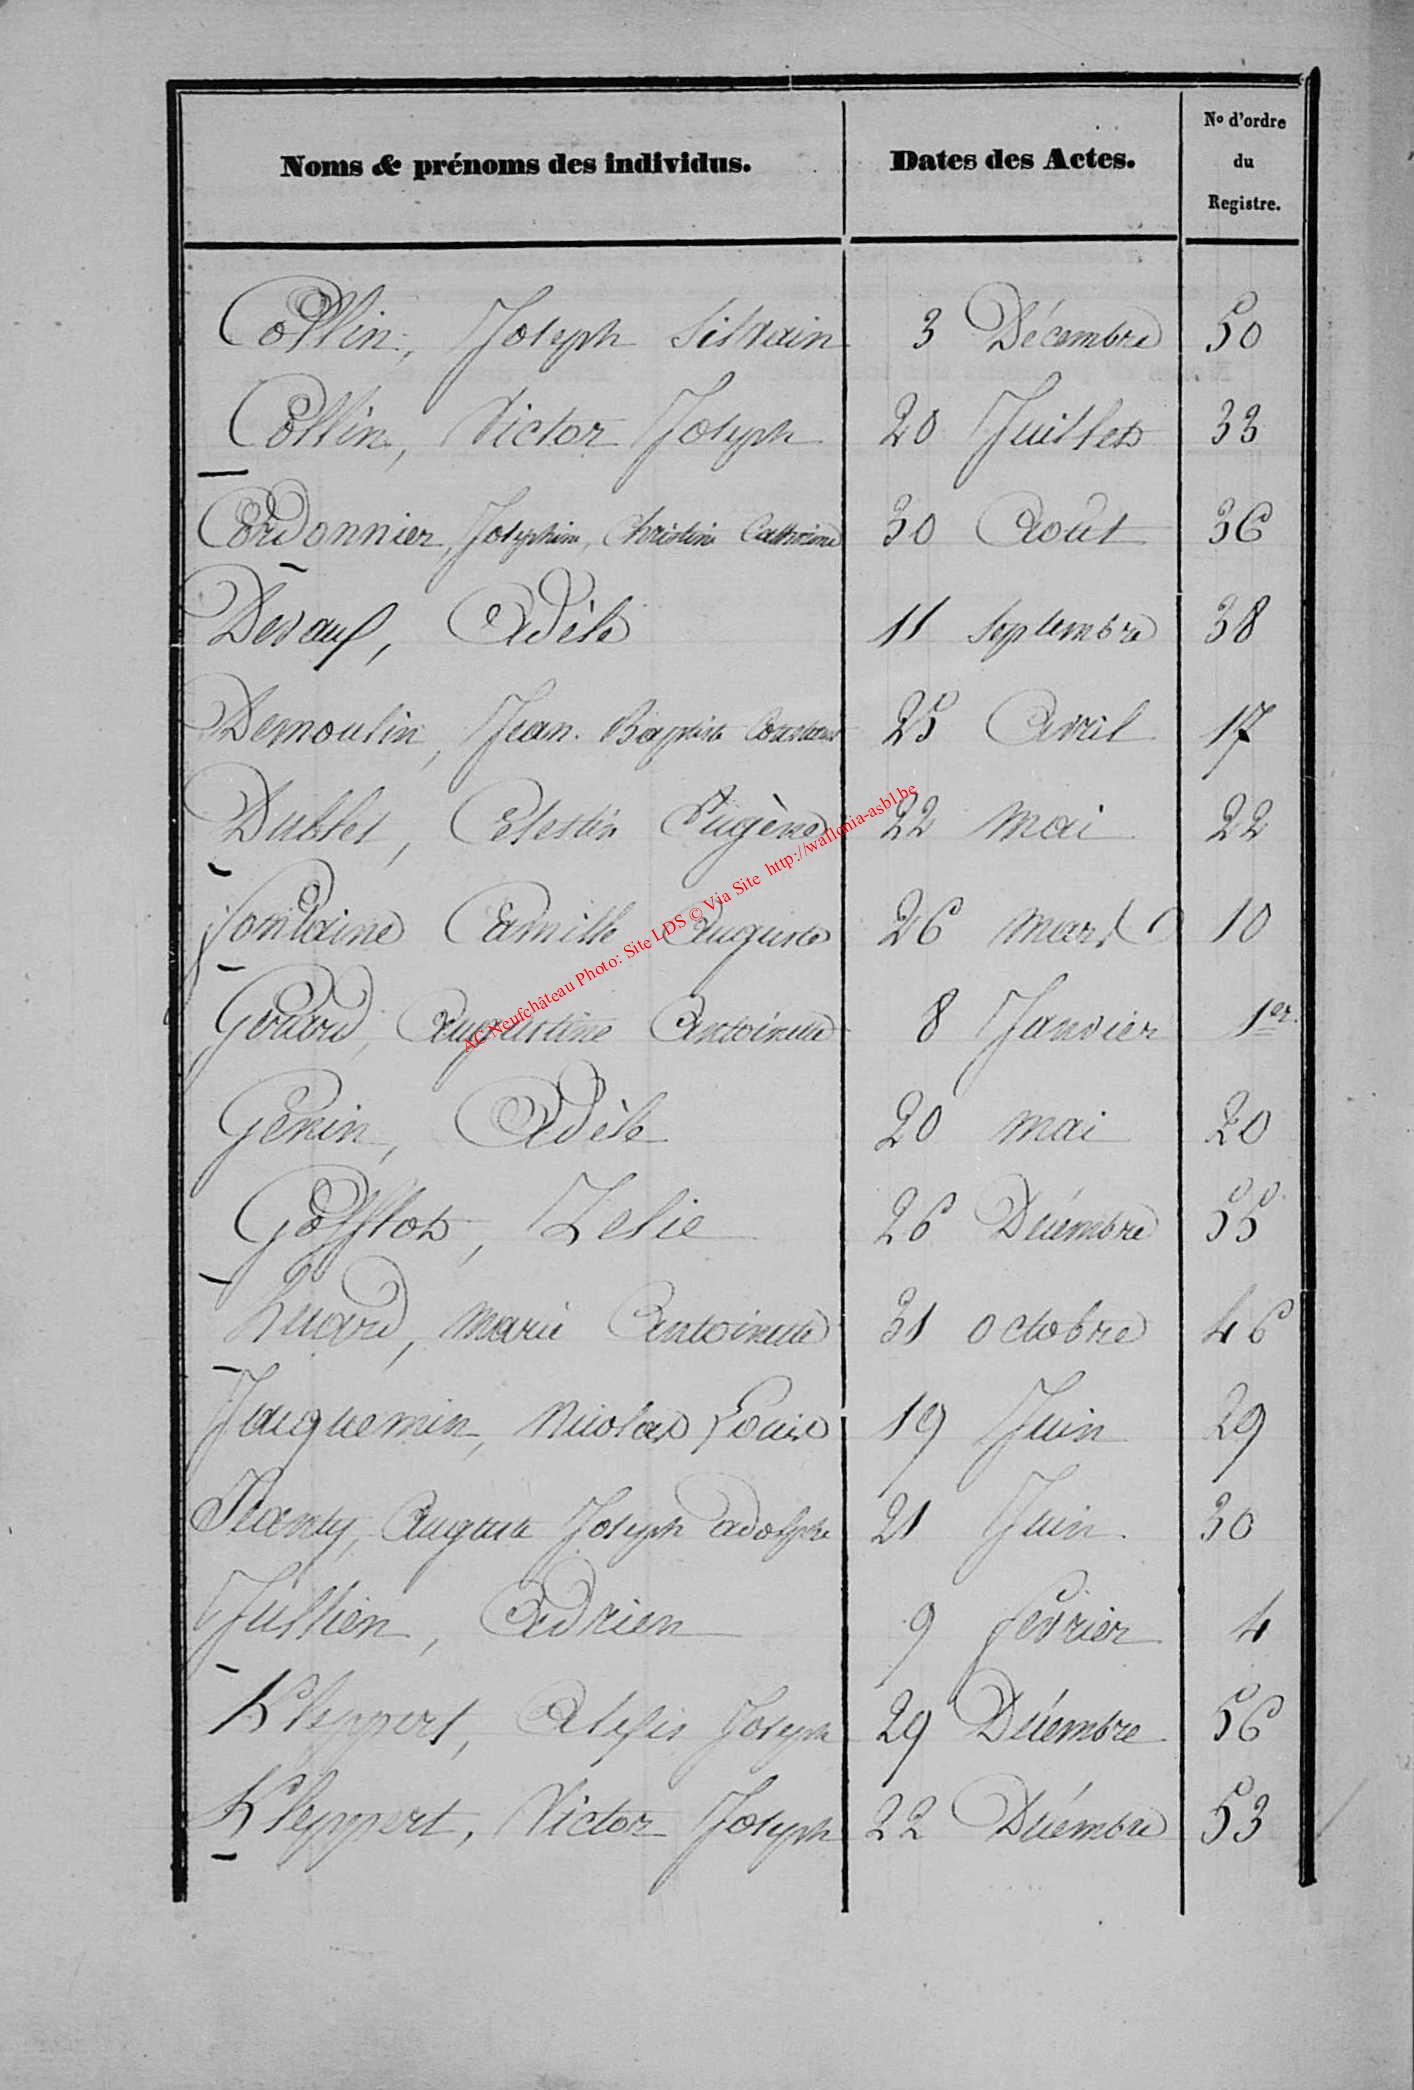 Noms & prénoms des individus. Dates des Actes. No d'ordre du Registre.
Collin, Joseph Silvain 3 Décembre 50
Collin, Victor Joseph 20 Juillet 33
Cordonnier, Joséphine, Christine Catherine 30 Août 36
Adèle 11 Septembre 38
Demoulin, Jean Baptiste Constant 25 Avril 17
Dublet, Célestin Eugène 22 mai 22
Fontaine Camille Auguste 26 mars 10
Gérard, Augustine Antoinette 8 Janvier 1er
Genin, Adèle 20 mai 20
Gofflot, Zelie 26 Décembre 55
Huard, Marie Antoinette 31 octobre 46
Jacquemin, Nicolas Louis 19 Juin 29
Auguste Joseph adolphe 21 Juin 30
Jullien, Adrien 9 février 4
Kleppert, Alexis Joseph 29 Décembre 56
Kleppert, Victor Joseph 22 Décembre 53
AC Neufchâteau Photo: Site LDS © Via Site http://wallonia-asbl.be